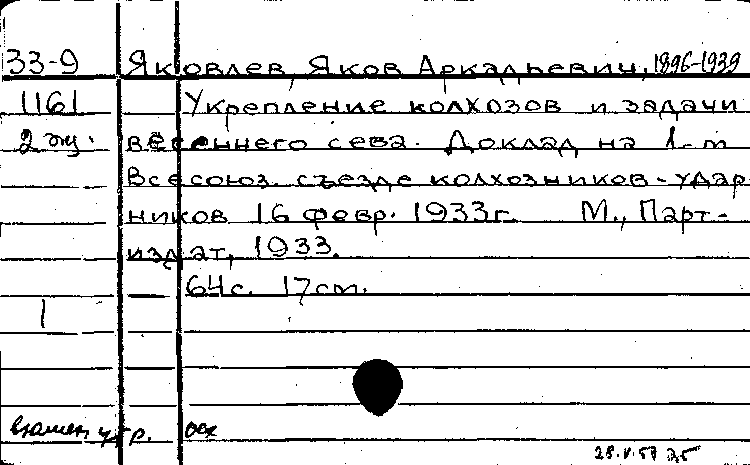 33-9 Яковлев, Яков Аркадьевич, 1896-1939
1161 Укрепление колхозов и задачи
2 эк. весеннего сева. Доклад на 1-м
Всесоюз. съезде колхозников-удар
ников 16 февр. 1933г. М., Парт-
издат, 1933.
64с. 17см.
1
взамен утр.
28.V.57